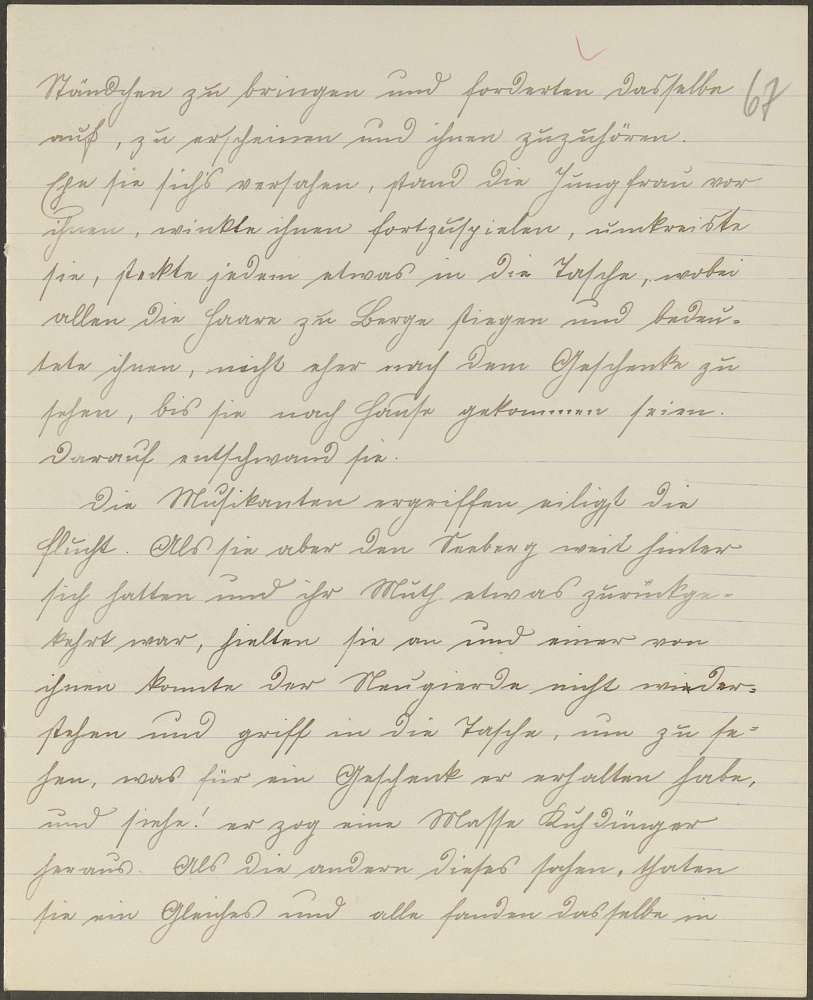 67
Ständchen zu bringen und forderten dasselbe
auf, zu erscheinen und ihnen zuzuhören.
Ehe sie sich's versahen, stand die Jungfrau vor
ihnen, winkte ihnen fortzuspielen, umkreiste
sie, steckte jedem etwas in die Tasche, wobei
allen die Haare zu Berge stiegen und bedeu-
tete ihnen, nicht eher nach dem Geschenke zu
sehen, bis sie nach Hause gekommen seien.
Darauf entschwand sie.
Die Musikanten ergriffen eiligst die
Flucht. Als sie aber den Seeberg weit hinter
sich hatten und ihr Muth etwas zurückge-
kehrt war, hielten sie an und einer von
ihnen konnte der Neugierde nicht wieder-
stehen und griff in die Tasche, um zu se-
hen, was für ein Geschenk er erhalten habe,
und siehe! er zog eine Masse Kuhdünger
heraus. Als die andern dieses sahen, thaten
sie ein Gleiches und alle fanden dasselbe in